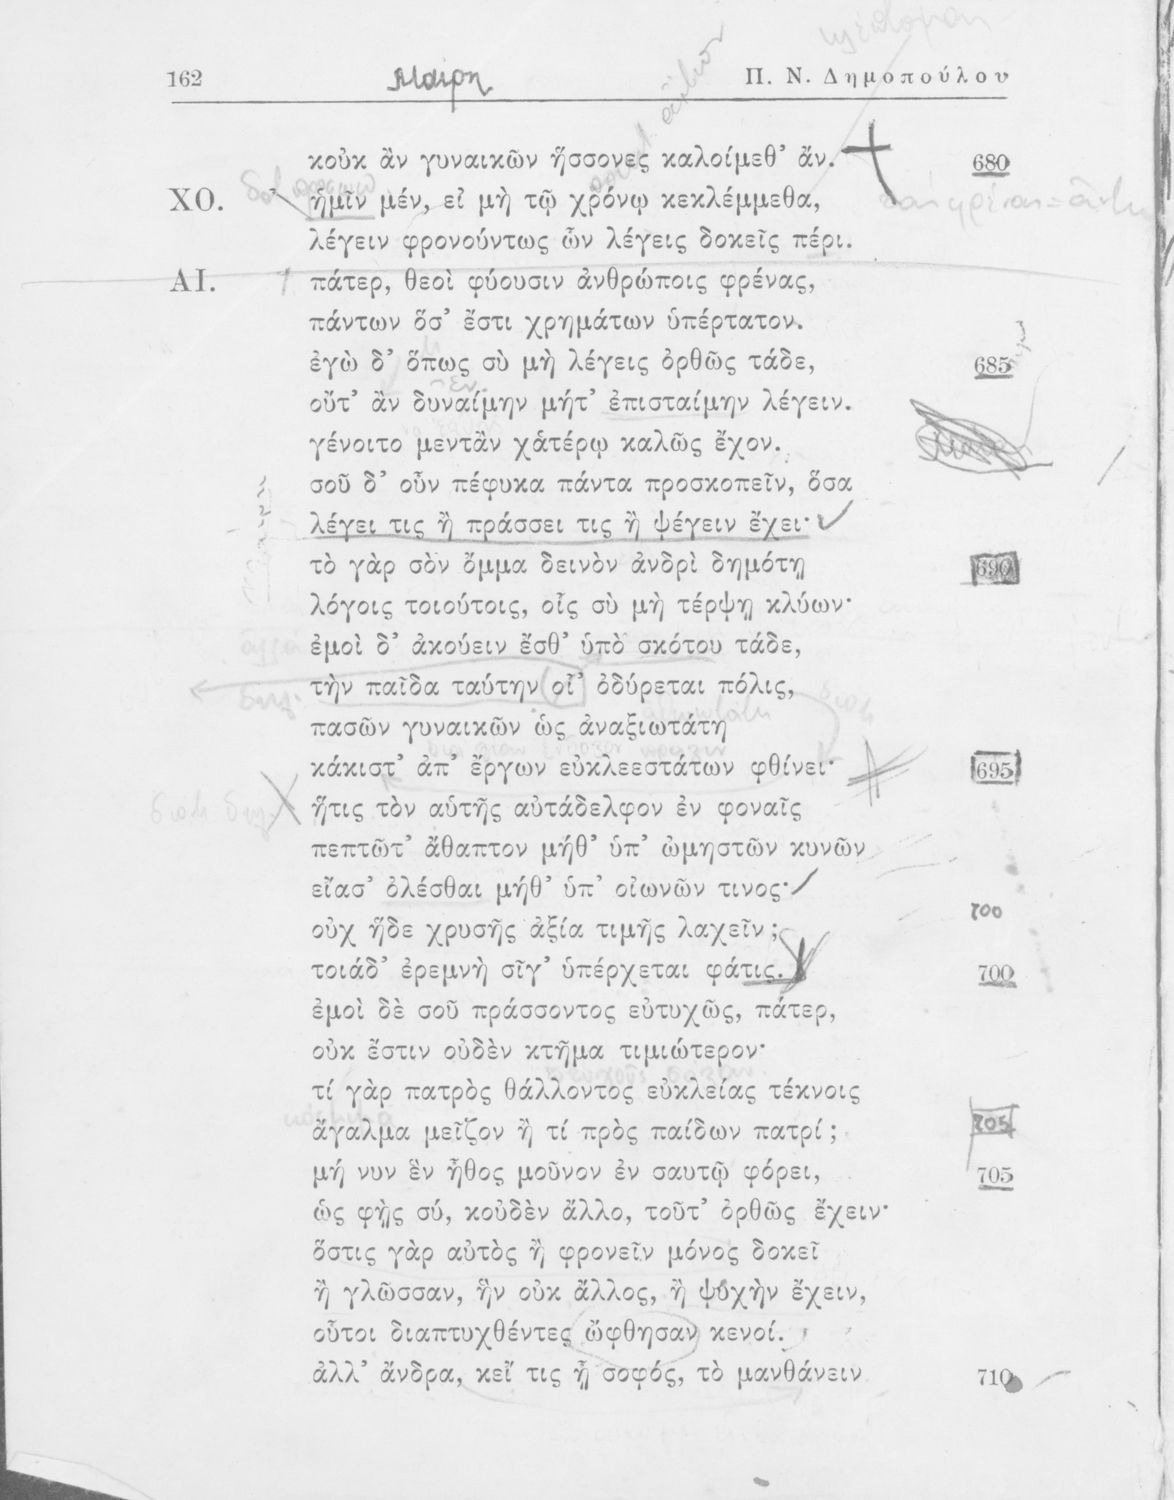 162 Μαίρη Π. Ν. Δημοπούλου
κοὐκ ἂν γυναικῶν ἥσσονες καλοίμεθ’ ἄν. 680
ΧΟ. ἡμῖν μέν, εἰ μὴ τῷ χρόνῳ κεκλέμμεθα,
λέγειν φρονούντως ὧν λέγεις δοκεῖς πέρι.
ΑΙ. πάτερ, θεοὶ φύουσιν ἀνθρώποις φρένας,
πάντων ὅσ’ ἔστι χρημάτων ὑπέρτατον.
ἐγὼ δ’ ὅπως σὺ μὴ λέγεις ὀρθῶς τάδε, 685
οὔτ’ ἂν δυναίμην μήτ’ ἐπισταίμην λέγειν.
γένοιτο μεντἂν χἁτέρῳ καλῶς ἔχον.
σοῦ δ’ οὖν πέφυκα πάντα προσκοπεῖν, ὅσα
λέγει τις ἢ πράσσει τις ἢ ψέγειν ἔχει·
τὸ γὰρ σὸν ὄμμα δεινὸν ἀνδρὶ δημότῃ 690
λόγοις τοιούτοις, οἷς σὺ μὴ τέρψῃ κλύων·
ἐμοὶ δ’ ἀκούειν ἔσθ’ ὑπὸ σκότου τάδε,
τὴν παῖδα ταύτην οἷ’ ὀδύρεται πόλις,
πασῶν γυναικῶν ὡς ἀναξιωτάτη
κάκιστ’ ἀπ’ ἔργων εὐκλεεστάτων φθίνει· 695
ἥτις τὸν αὑτῆς αὐτάδελφον ἐν φοναῖς
πεπτῶτ’ ἄθαπτον μήθ’ ὑπ’ ὠμηστῶν κυνῶν
εἴασ’ ὀλέσθαι μήθ’ ὑπ’ οἰωνῶν τινος·
700
οὐχ ἥδε χρυσῆς ἀξία τιμῆς λαχεῖν;
τοιάδ’ ἐρεμνὴ σῖγ’ ὑπέρχεται φάτις. 700
ἐμοὶ δὲ σοῦ πράσσοντος εὐτυχῶς, πάτερ,
οὐκ ἔστιν οὐδὲν κτῆμα τιμιώτερον·
τί γὰρ πατρὸς θάλλοντος εὐκλείας τέκνοις
ἄγαλμα μεῖζον ἢ τί πρὸς παίδων πατρί; 705
μή νυν ἓν ἦθος μοῦνον ἐν σαυτῷ φόρει, 705
ὡς φῂς σύ, κοὐδὲν ἄλλο, τοῦτ’ ὀρθῶς ἔχειν·
ὅστις γὰρ αὐτὸς ἢ φρονεῖν μόνος δοκεῖ
ἢ γλῶσσαν, ἣν οὐκ ἄλλος, ἢ ψυχὴν ἔχειν,
οὗτοι διαπτυχθέντες ὤφθησαν κενοί.
ἀλλ’ ἄνδρα, κεἴ τις ᾖ σοφός, τὸ μανθάνειν 710